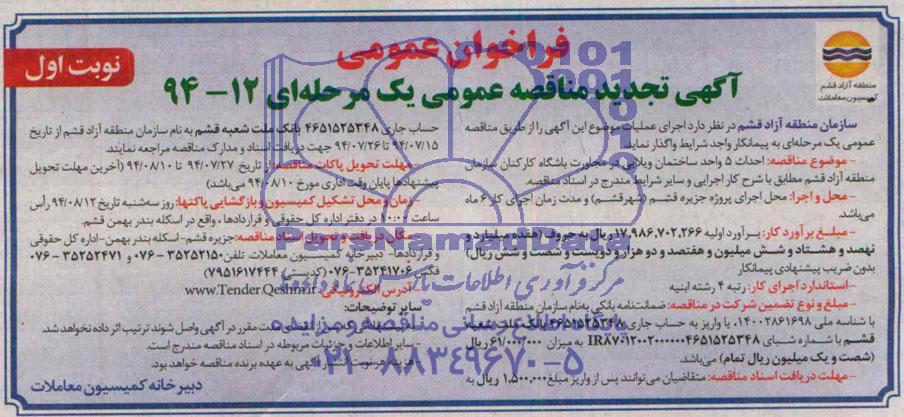 نوبت اول
فراخوان عمومی
آگهی تجدید مناقصه عمومی یک مرحله‌ای ۱۲-۹۴
منطقه آزاد قشم
کمیسیون معاملات
سازمان منطقه آزاد قشم در نظر دارد اجرای عملیات موضوع این آگهی را از طریق مناقصه
عمومی یک مرحله‌ای به پیمانکار واجد شرایط واگذار نماید.
– موضوع مناقصه: احداث ۵ واحد ساختمان ویلایی در مجاورت باشگاه کارکنان سازمان
منطقه آزاد قشم مطابق با شرح کار اجرایی و سایر شرایط مندرج در اسناد مناقصه.
– محل و اجرا: محل اجرای پروژه جزیره قشم (شهر قشم) و مدت زمان اجرای کار ۶ ماه
می‌باشد.
– مبلغ برآورد کار: برآورد اولیه ۱۷,۹۸۶,۷۰۲,۲۶۶ ریال به حروف (هفده میلیارد و
نهصد و هشتاد و شش میلیون و هفتصد و دو هزار و دویست و شصت و شش ریال)
بدون ضریب پیشنهادی پیمانکار
– استاندارد اجرای کار: رتبه ۴ رشته ابنیه
– مبلغ و نوع تضمین شرکت در مناقصه: ضمانت‌نامه بانکی به‌نام سازمان منطقه آزاد قشم
با شناسه ملی ۱۴۰۰۲۸۶۱۶۹۸، یا واریز به حساب جاری ۴۶۵۱۵۲۵۳۴۸ بانک ملت شعبه
قشم با شماره شبای به میزان ۶۱/۰۰۰/۰۰۰ ریال
(شصت و یک میلیون ریال تمام) می‌باشد.
– مهلت دریافت اسناد مناقصه: متقاضیان می‌توانند پس از واریز مبلغ ۱,۵۰۰,۰۰۰ ریال به
حساب جاری ۴۶۵۱۵۲۵۳۴۸ بانک ملت شعبه قشم به نام سازمان منطقه آزاد قشم از تاریخ
۹۴/۰۷/۱۵ تا ۹۴/۰۷/۲۶ جهت دریافت اسناد و مدارک مناقصه مراجعه نمایند.
– مهلت تحویل پاکات مناقصه: از تاریخ ۹۴/۰۷/۲۷ تا ۹۴/۰۸/۱۰ (آخرین مهلت تحویل
پیشنهادها پایان وقت اداری مورخ ۹۴/۰۸/۱۰ می‌باشد)
– زمان و محل تشکیل کمیسیون و بازگشایی پاکتها: روز سه‌شنبه تاریخ ۹۴/۰۸/۱۲ رأس
ساعت ۱۰:۰۰ در دفتر اداره کل حقوقی و قراردادها، واقع در اسکله بندر بهمن قشم.
– مکان دریافت و تحویل اسناد مناقصه: جزیره قشم - اسکله بندر بهمن- اداره کل حقوقی
و قراردادها- دبیرخانه کمیسیون معاملات. تلفن ۳۵۲۵۲۱۵۰-۰۷۶ و ۳۵۲۵۲۴۷۱-۰۷۶
فکس ۳۵۲۴۱۷۰۶-۰۷۶ (کدپستی ۷۹۵۱۶۱۷۴۴۴)
– آدرس الکترونیکی: www.Tender.Qeshm.ir
سایر توضیحات:
از انقضای مدت مقرر در آگهی واصل شوند ترتیب اثر داده نخواهد شد.
– سایر اطلاعات و جزئیات مربوطه در اسناد مناقصه مندرج است.
– هزینه هر نوبت انتشار آگهی به عهده برنده مناقصه خواهد بود.
دبیرخانه کمیسیون معاملات
0101
ParsNamadData
مرکز فرآوری اطلاعات پارس نماد داده‌ها
پایگاه اطلاع رسانی مناقصه و مزایده
۰۲۱-۸۸۳۴۹۶۷۰-۵